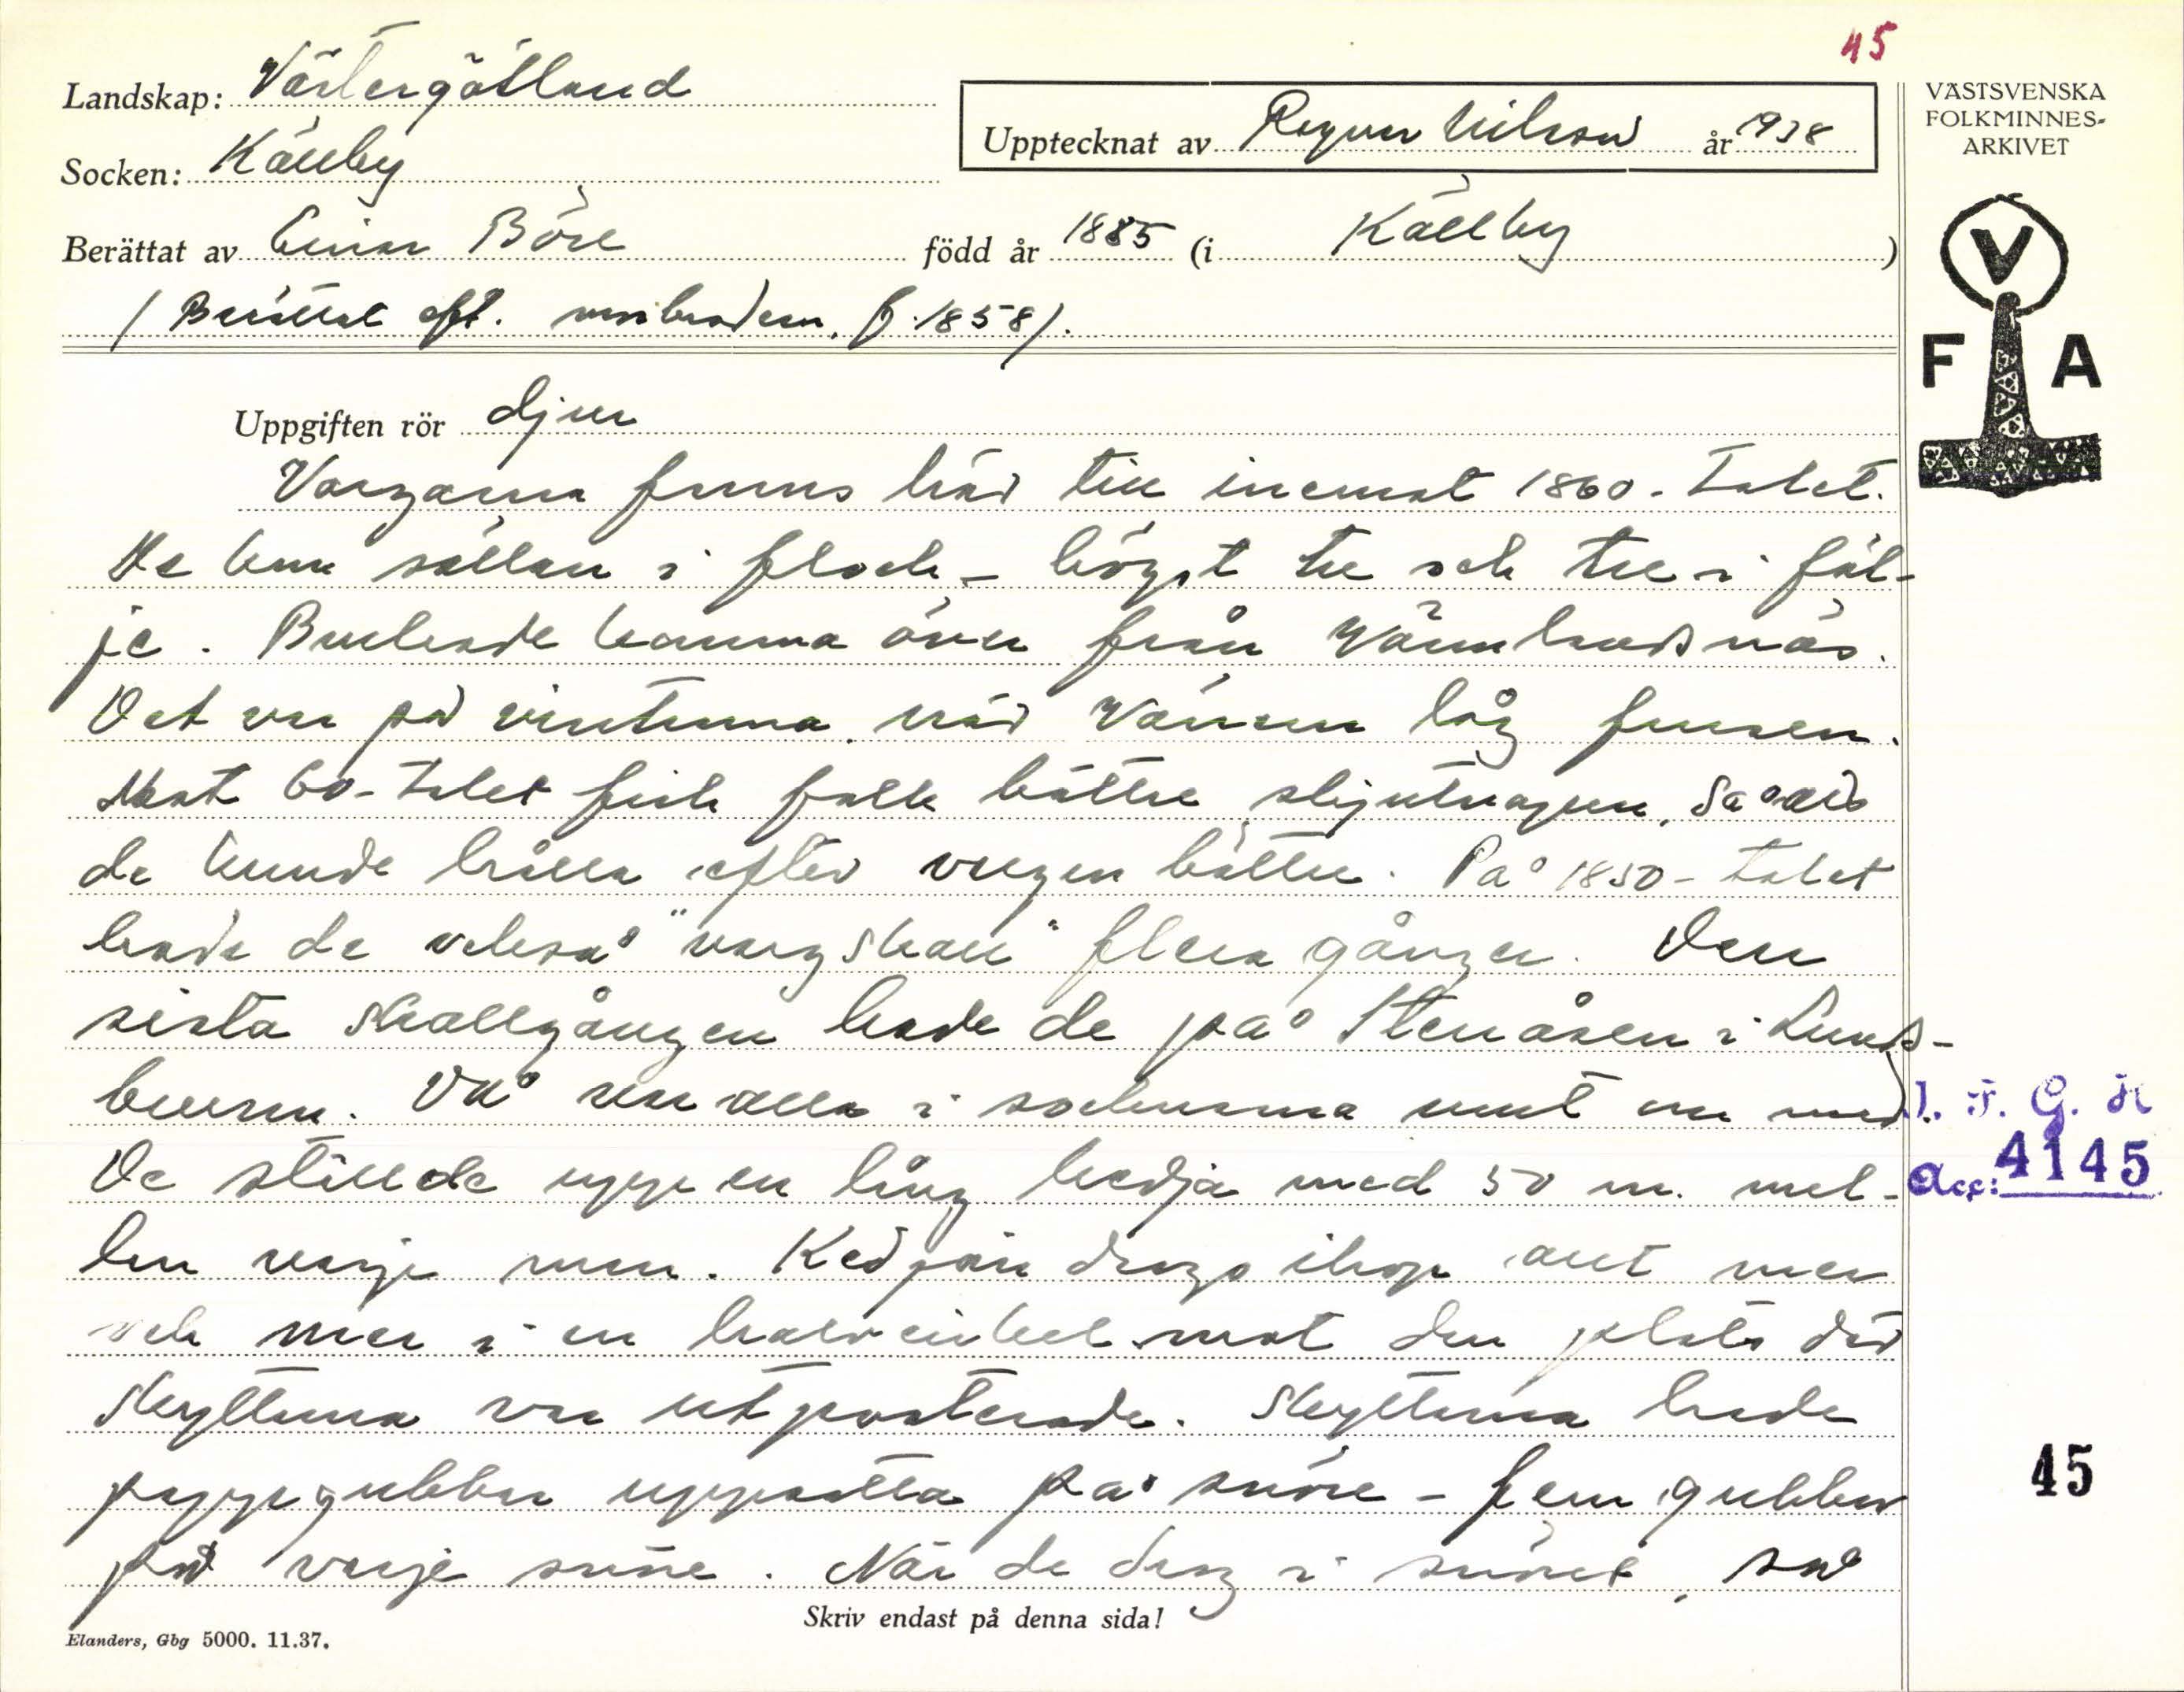 45
Landskap: Västergötland
VÄSTSVENSKA
FOLKMINNES-
ARKIVET
Upptecknat av Ragnar Nilsson år 1938
Socken: Källby
Berättat av Einar Böre född år 1885 (i Källby)
(Berättat eft. morbrodern, f. 1858).
V
F A
Uppgiften rör djur
Vargarna funns här till inemot 1860-talet.
De kom sällan i flock – högst tre och tre i föl-
je. Brukade komma över från Värmlandsnäs.
Det var på vintrarna, när Vänern låg frusen.
Mot 60-talet fick folk bättre skjutvapen, så att
de kunde hålla efter vargen bättre. På 1850-talet
hade de också "vargskall" flera gånger. Den
sista skallgången hade de på Stenåsen i Lunds-
brunn. Då var alla i socknarna runt om med.
De ställde upp en lång kedja med 50 m. mel-
lan varje man. Kedjan drogs ihop allt mer
och mer i en halvcirkel mot den plats där
skyttarna var utposterade. Skyttarna hade
pappgubbar uppsatta på snöre – fem gubbar
på varje snöre. När de drog i snöret, så
I. F. G. H
Acc: 4145
45
Skriv endast på denna sida!
Elanders, Gbg 5000. 11.37.